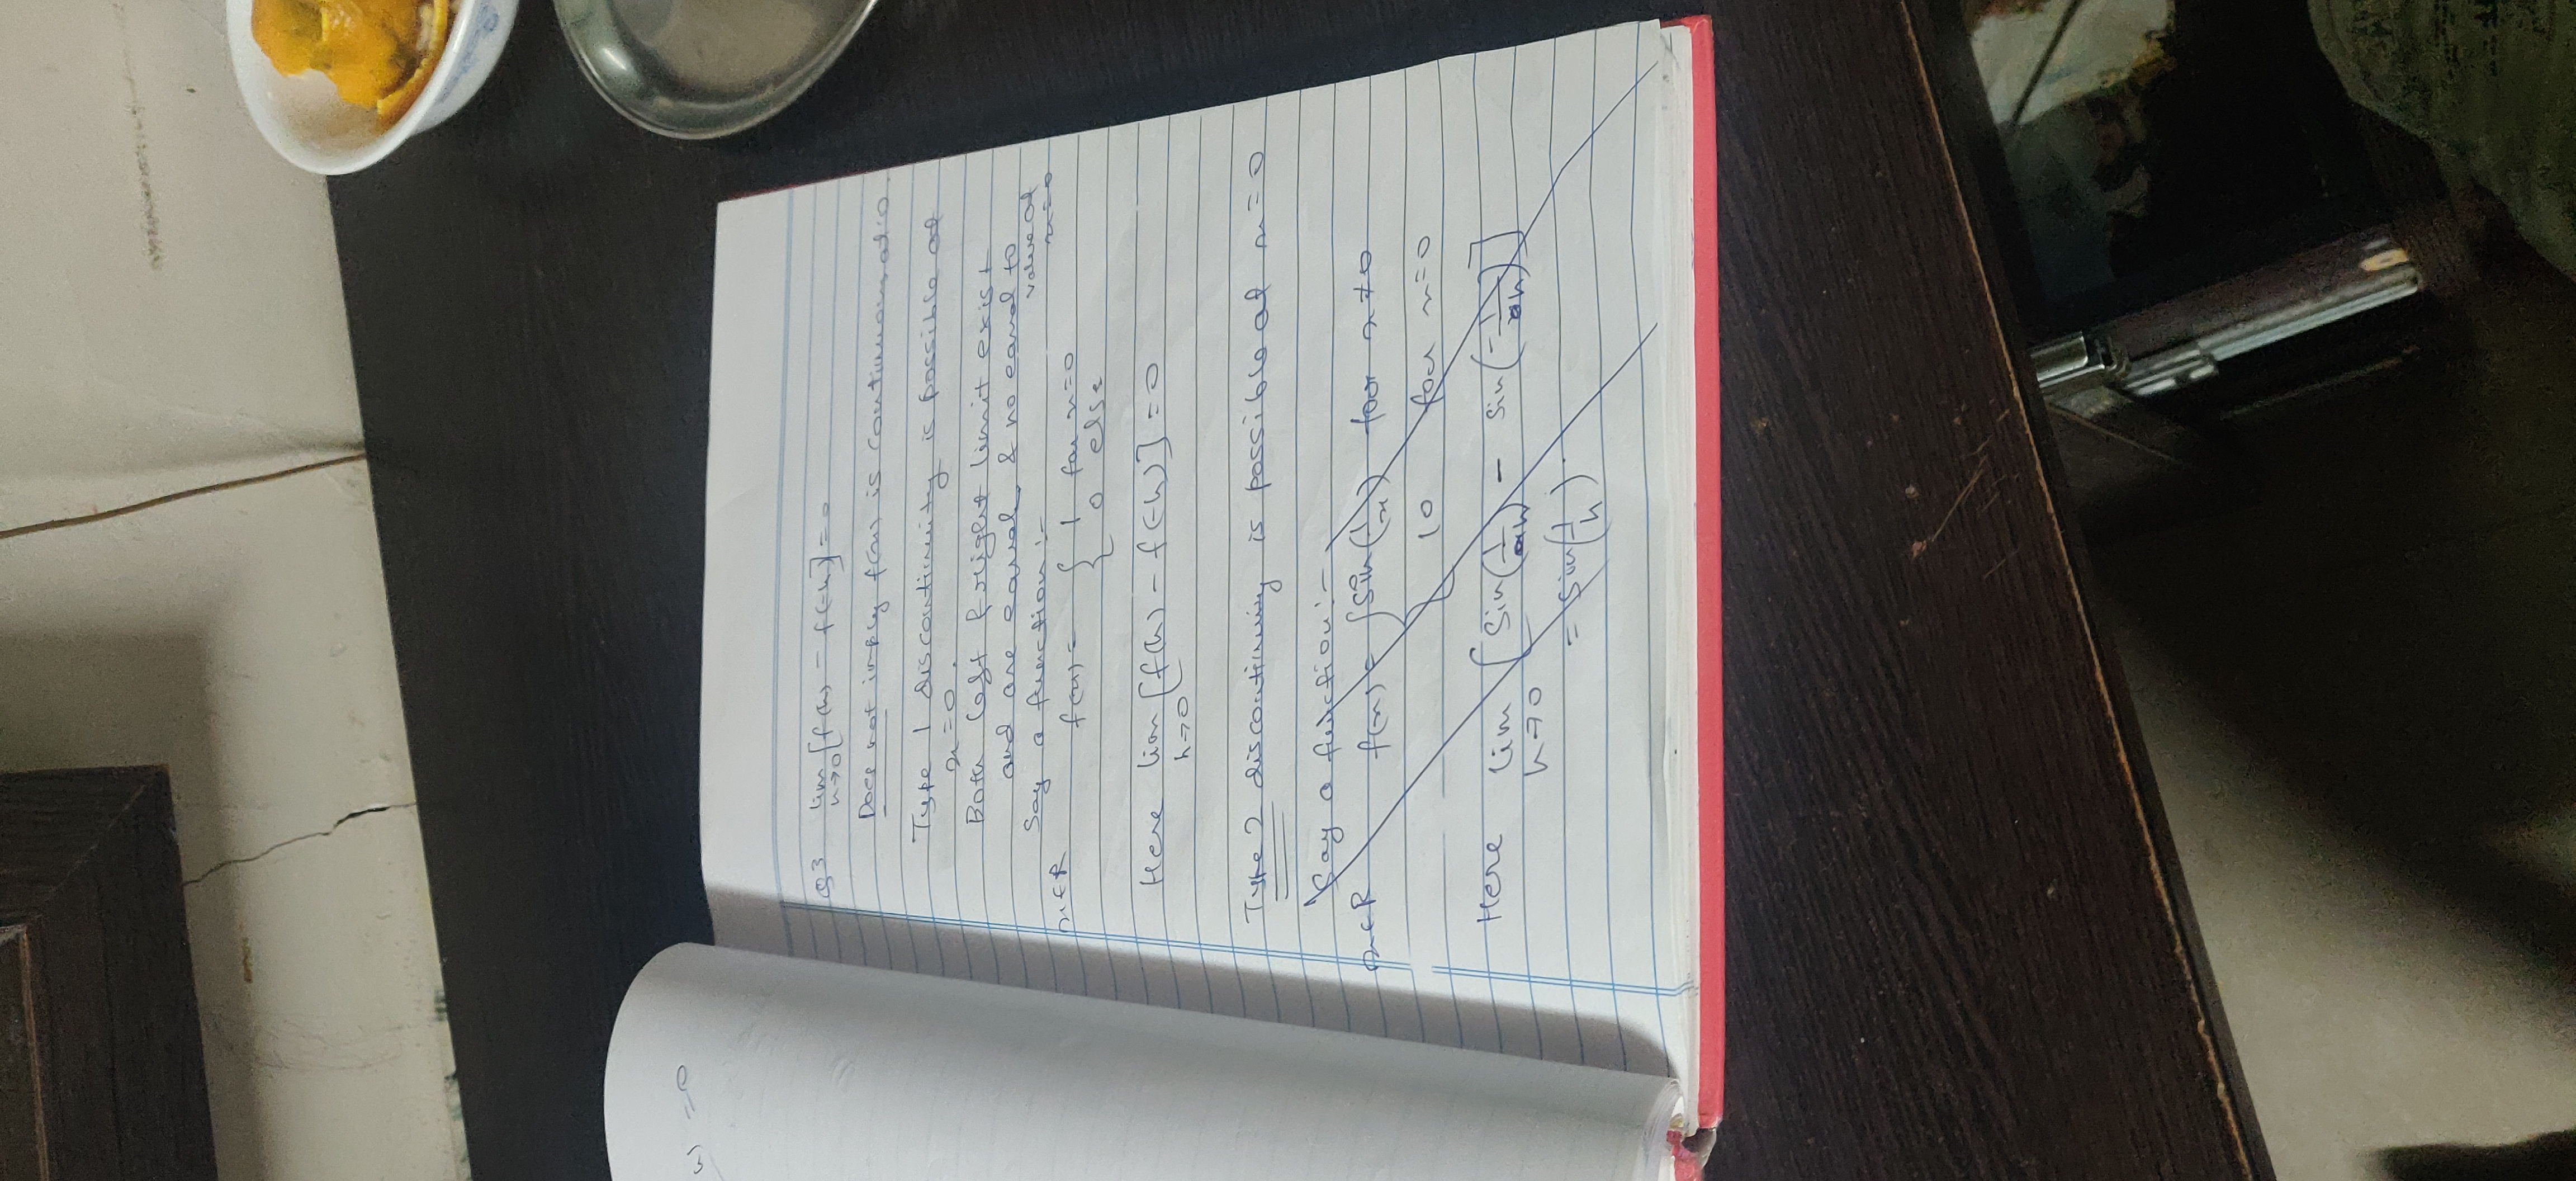 u) =0
Q3 lim [f(h) - f(-h)] = 0
h→0
Does not imply f(x) is continuous at 0.
Type 1 discontinuity is possible at
x=0.
Both left & right limit exist
and are equal & no equal to
value at
x=0
Say a function :-
x∈R f(x) = { 1 for x=0
0 else
Here lim [f(h) - f(-h)] = 0
h→0
Type 2 discontinuiy is possible at x=0
Say a function :-
x∈R f(x) = { sin(1/x) for x≠0
10 for x=0
Here lim [sin(1/h) - sin(-1/h)]
h→0
= sin(1/h)